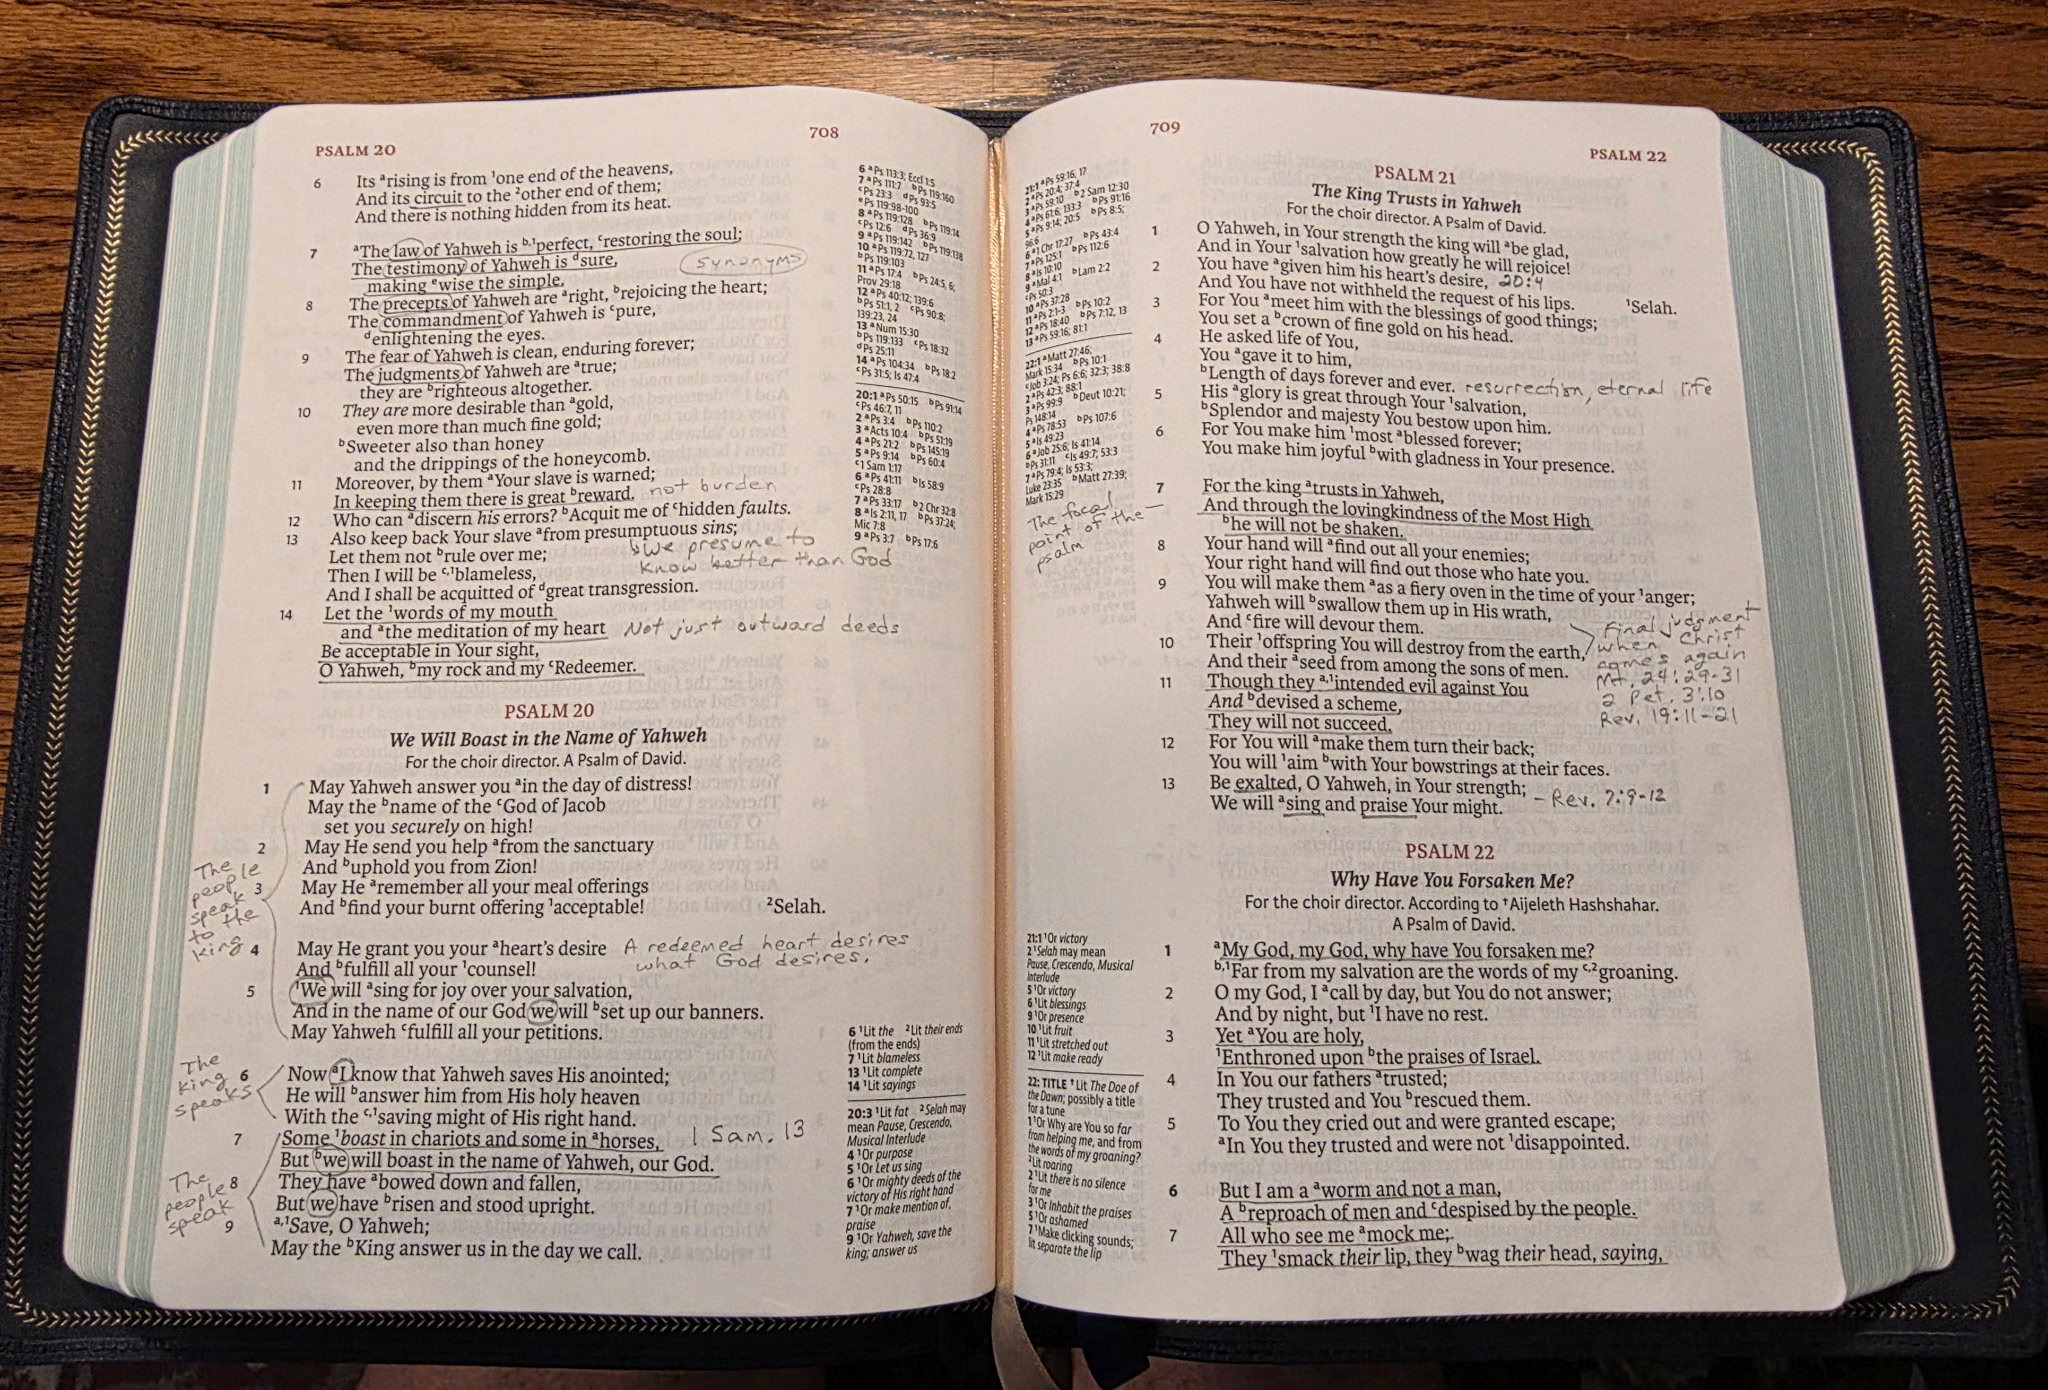 PSALM 20
708
6 Its ᵃrising is from ¹one end of the heavens,
And its circuit to the ²other end of them;
And there is nothing hidden from its heat.
7 ᵃThe law of Yahweh is ᵇ,¹perfect, ᶜrestoring the soul;
The testimony of Yahweh is ᵈsure,
making ᵉwise the simple.
synonyms
8 The precepts of Yahweh are ᵃright, ᵇrejoicing the heart;
The commandment of Yahweh is ᶜpure,
ᵈenlightening the eyes.
9 The fear of Yahweh is clean, enduring forever;
The judgments of Yahweh are ᵃtrue;
they are ᵇrighteous altogether.
10 They are more desirable than ᵃgold,
even more than much fine gold;
ᵇSweeter also than honey
and the drippings of the honeycomb.
11 Moreover, by them ᵃYour slave is warned;
In keeping them there is great ᵇreward. not burden
12 Who can ᵃdiscern his errors? ᵇAcquit me of ᶜhidden faults.
13 Also keep back Your slave ᵃfrom presumptuous sins;
Let them not ᵇrule over me;
we presume to
know better than God
Then I will be ᶜ,¹blameless,
And I shall be acquitted of ᵈgreat transgression.
14 Let the ¹words of my mouth
and ᵃthe meditation of my heart Not just outward deeds
Be acceptable in Your sight,
O Yahweh, ᵇmy rock and my ᶜRedeemer.
PSALM 20
We Will Boast in the Name of Yahweh
For the choir director. A Psalm of David.
1 May Yahweh answer you ᵃin the day of distress!
May the ᵇname of the ᶜGod of Jacob
set you securely on high!
2 May He send you help ᵃfrom the sanctuary
And ᵇuphold you from Zion!
3 May He ᵃremember all your meal offerings
And ᵇfind your burnt offering ¹acceptable! ²Selah.
The
people
speak
to the
king
4 May He grant you your ᵃheart's desire A redeemed heart desires
what God desires.
And ᵇfulfill all your ¹counsel!
5 ¹We will ᵃsing for joy over your salvation,
And in the name of our God we will ᵇset up our banners.
May Yahweh ᶜfulfill all your petitions.
The
king
speaks
6 Now ᵃI know that Yahweh saves His anointed;
He will ᵇanswer him from His holy heaven
With the ᶜ,¹saving might of His right hand.
7 Some ¹boast in chariots and some in ᵃhorses, 1 Sam. 13
But ᵇwe will boast in the name of Yahweh, our God.
The
people
speak
8 They have ᵃbowed down and fallen,
But we have ᵇrisen and stood upright.
9 ᵃ,¹Save, O Yahweh;
May the ᵇKing answer us in the day we call.
6 ᵃPs 113:3; Eccl 1:5
7 ᵃPs 111:7 ᵇPs 119:160
ᶜPs 23:3 ᵈPs 93:5
ᵉPs 119:98-100
8 ᵃPs 119:128 ᵇPs 119:14
ᶜPs 12:6 ᵈPs 36:9
9 ᵃPs 119:142 ᵇPs 119:138
10 ᵃPs 119:72, 127
ᵇPs 119:103
11 ᵃPs 17:4 ᵇPs 24:5, 6;
Prov 29:18
12 ᵃPs 40:12; 139:6
ᵇPs 51:1, 2 ᶜPs 90:8;
139:23, 24
13 ᵃNum 15:30
ᵇPs 119:133 ᶜPs 18:32
ᵈPs 25:11
14 ᵃPs 104:34 ᵇPs 18:2
ᶜPs 31:5; Is 47:4
20:1 ᵃPs 50:15 ᵇPs 91:14
ᶜPs 46:7, 11
2 ᵃPs 3:4 ᵇPs 110:2
3 ᵃActs 10:4 ᵇPs 51:19
4 ᵃPs 21:2 ᵇPs 145:19
5 ᵃPs 9:14 ᵇPs 60:4
ᶜ1 Sam 1:17
6 ᵃPs 41:11 ᵇIs 58:9
ᶜPs 28:8
7 ᵃPs 33:17 ᵇ2 Chr 32:8
8 ᵃIs 2:11, 17 ᵇPs 37:24;
Mic 7:8
9 ᵃPs 3:7 ᵇPs 17:6
6 ¹Lit the ²Lit their ends
(from the ends)
7 ¹Lit blameless
13 ¹Lit complete
14 ¹Lit sayings
20:3 ¹Lit fat ²Selah may
mean Pause, Crescendo,
Musical Interlude
4 ¹Or purpose
5 ¹Or Let us sing
6 ¹Or mighty deeds of the
victory of His right hand
7 ¹Or make mention of,
praise
9 ¹Or Yahweh, save the
king; answer us
709
PSALM 22
21:1 ᵃPs 59:16, 17
2 ᵃPs 20:4; 37:4
3 ᵃPs 59:10 ᵇ2 Sam 12:30
4 ᵃPs 61:6; 133:3 ᵇPs 91:16
5 ᵃPs 9:14; 20:5 ᵇPs 8:5;
96:6
6 ᵃ1 Chr 17:27 ᵇPs 43:4
7 ᵃPs 125:1 ᵇPs 112:6
8 ᵃIs 10:10
9 ᵃMal 4:1 ᵇLam 2:2
ᶜPs 50:3
10 ᵃPs 37:28
11 ᵃPs 2:1-3 ᵇPs 10:2
12 ᵃPs 18:40 ᵇPs 7:12, 13
13 ᵃPs 59:16; 81:1
22:1 ᵃMatt 27:46;
Mark 15:34 ᵇPs 10:1
ᶜJob 3:24; Ps 6:6; 32:3; 38:8
2 ᵃPs 42:3; 88:1
3 ᵃPs 99:9 ᵇDeut 10:21;
Ps 148:14
4 ᵃPs 78:53 ᵇPs 107:6
5 ᵃIs 49:23
6 ᵃJob 25:6; Is 41:14
ᵇPs 31:11 ᶜIs 49:7; 53:3
7 ᵃPs 79:4; Is 53:3;
Luke 23:35 ᵇMatt 27:39;
Mark 15:29
The focal
point of the
psalm
21:1 ¹Or victory
2 ¹Selah may mean
Pause, Crescendo, Musical
Interlude
5 ¹Or victory
6 ¹Lit blessings
9 ¹Or presence
10 ¹Lit fruit
11 ¹Lit stretched out
12 ¹Lit make ready
22: TITLE †Lit The Doe of
the Dawn; possibly a title
for a tune
1 ¹Or Why are You so far
from helping me, and from
the words of my groaning?
²Lit roaring
2 ¹Lit there is no silence
for me
3 ¹Or Inhabit the praises
5 ¹Or ashamed
7 ¹Make clicking sounds;
lit separate the lip
PSALM 21
The King Trusts in Yahweh
For the choir director. A Psalm of David.
1 O Yahweh, in Your strength the king will ᵃbe glad,
And in Your ¹salvation how greatly he will rejoice!
2 You have ᵃgiven him his heart's desire, 20:4
And You have not withheld the request of his lips. ¹Selah.
3 For You ᵃmeet him with the blessings of good things;
You set a ᵇcrown of fine gold on his head.
4 He asked life of You,
You ᵃgave it to him,
ᵇLength of days forever and ever. resurrection, eternal life
5 His ᵃglory is great through Your ¹salvation,
ᵇSplendor and majesty You bestow upon him.
6 For You make him ¹most ᵃblessed forever;
You make him joyful ᵇwith gladness in Your presence.
7 For the king ᵃtrusts in Yahweh,
And through the lovingkindness of the Most High
ᵇhe will not be shaken.
8 Your hand will ᵃfind out all your enemies;
Your right hand will find out those who hate you.
9 You will make them ᵃas a fiery oven in the time of your ¹anger;
Yahweh will ᵇswallow them up in His wrath,
And ᶜfire will devour them.
10 Their ¹offspring You will destroy from the earth,
And their ᵃseed from among the sons of men.
Final judgment
when Christ
comes again
Mt. 24:29-31
2 Pet. 3:10
Rev. 19:11-21
11 Though they ᵃ,¹intended evil against You
And ᵇdevised a scheme,
They will not succeed.
12 For You will ᵃmake them turn their back;
You will ¹aim ᵇwith Your bowstrings at their faces.
13 Be exalted, O Yahweh, in Your strength;
We will ᵃsing and praise Your might. - Rev. 7:9-12
PSALM 22
Why Have You Forsaken Me?
For the choir director. According to †Aijeleth Hashshahar.
A Psalm of David.
1 ᵃMy God, my God, why have You forsaken me?
ᵇ,¹Far from my salvation are the words of my ᶜ,²groaning.
2 O my God, I ᵃcall by day, but You do not answer;
And by night, but ¹I have no rest.
3 Yet ᵃYou are holy,
¹Enthroned upon ᵇthe praises of Israel.
4 In You our fathers ᵃtrusted;
They trusted and You ᵇrescued them.
5 To You they cried out and were granted escape;
ᵃIn You they trusted and were not ¹disappointed.
6 But I am a ᵃworm and not a man,
A ᵇreproach of men and ᶜdespised by the people.
7 All who see me ᵃmock me;
They ¹smack their lip, they ᵇwag their head, saying,